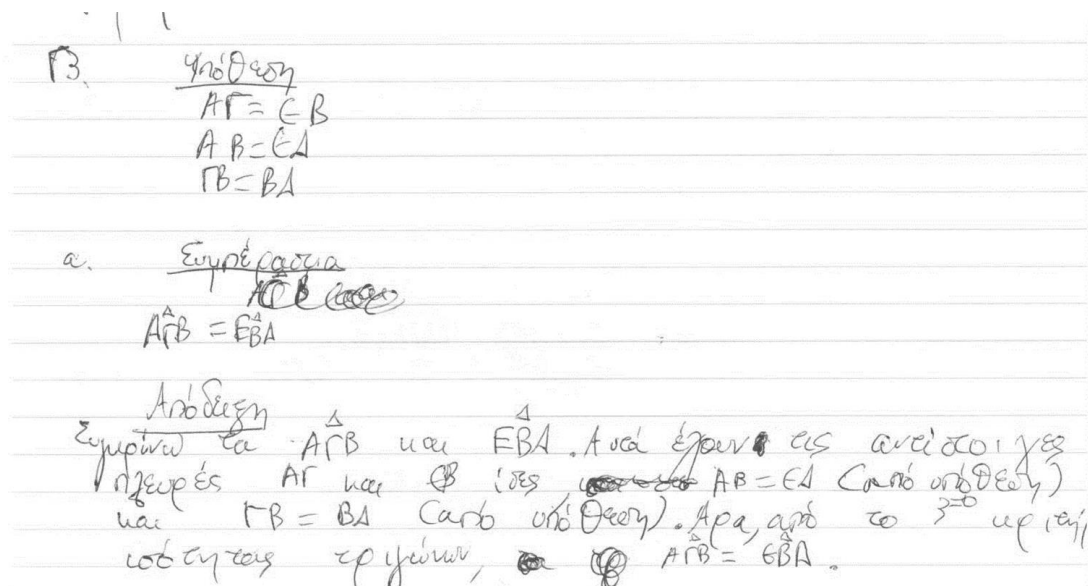 β. Υπόθεση
ΑΓ = ΕΒ
ΑΒ = ΕΔ
ΓΒ = ΒΔ
α. Συμπέρασμα
ΑΓ̂Β = ΕΒ̂Δ
Απόδειξη
Συγκρίνω τα ΑΓΒ και ΕΒΔ. Αυτά έχουν τις αντίστοιχες
πλευρές ΑΓ και ΕΒ ίσες, ΑΒ = ΕΔ (από υπόθεση)
και ΓΒ = ΒΔ (από υπόθεση). Άρα, από το 3ο κριτή
ισότητας τριγώνων, ΑΓΒ = ΕΒΔ.